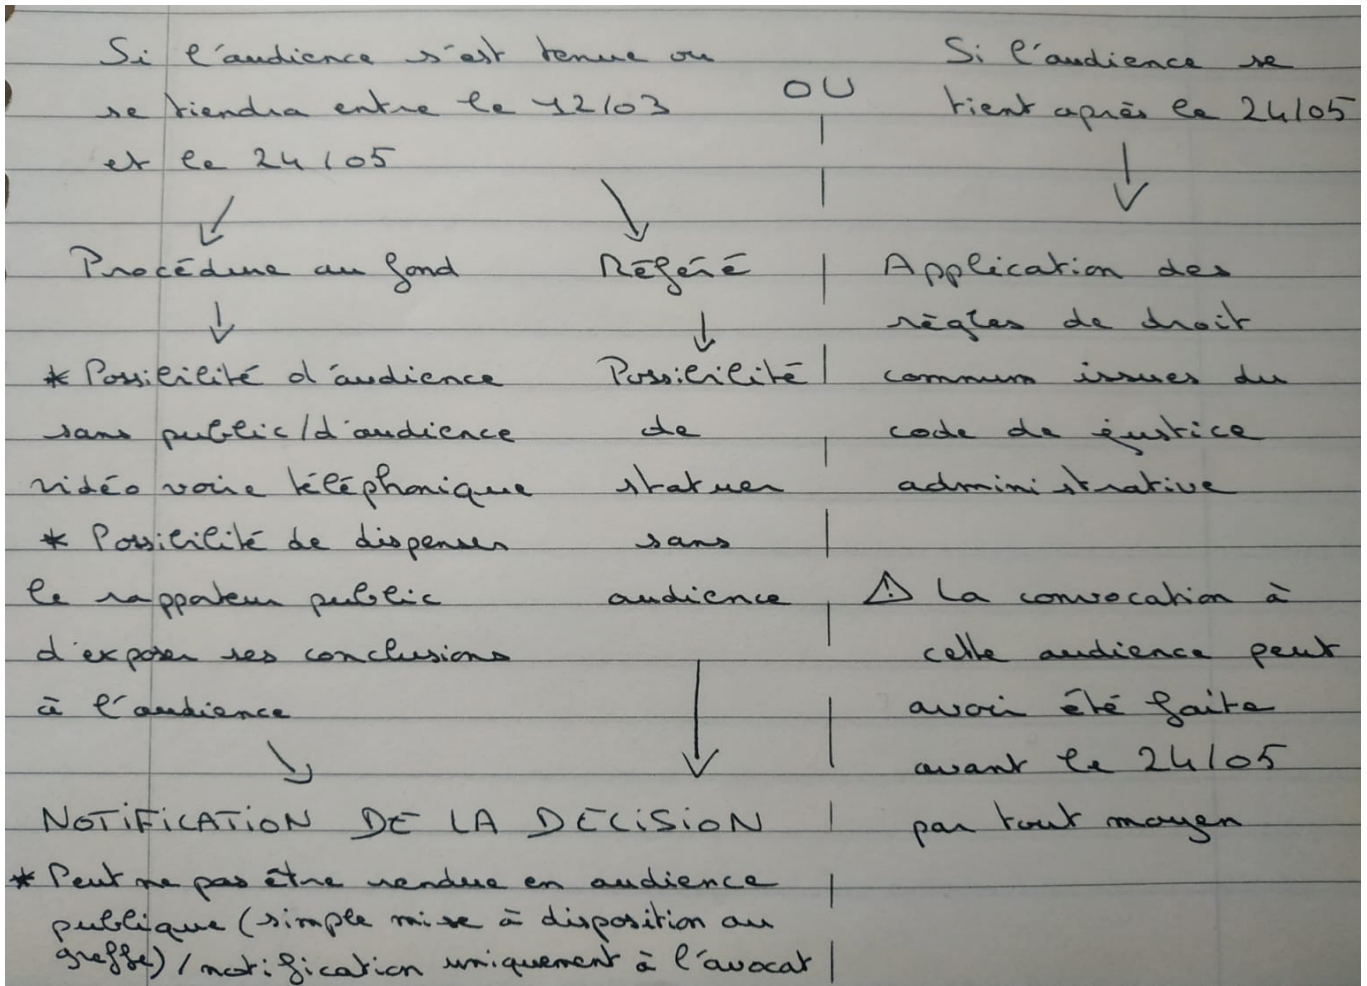 Si l'audience s'est tenue ou
se tiendra entre le 12/03
et le 24/05
OU
Si l'audience se
tient après le 24/05
Procédure au fond
* Possibilité d'audience
sans public/d'audience
vidéo voire téléphonique
* Possibilité de dispenser
le rapporteur public
d'exposer ses conclusions
à l'audience
Référé
Possibilité
de
statuer
sans
audience
NOTIFICATION DE LA DÉCISION
* Peut ne pas être rendue en audience
publique (simple mise à disposition au
greffe) / notification uniquement à l'avocat
Application des
règles de droit
commun issues du
code de justice
administrative
⚠ La convocation à
cette audience peut
avoir été faite
avant le 24/05
par tout moyen